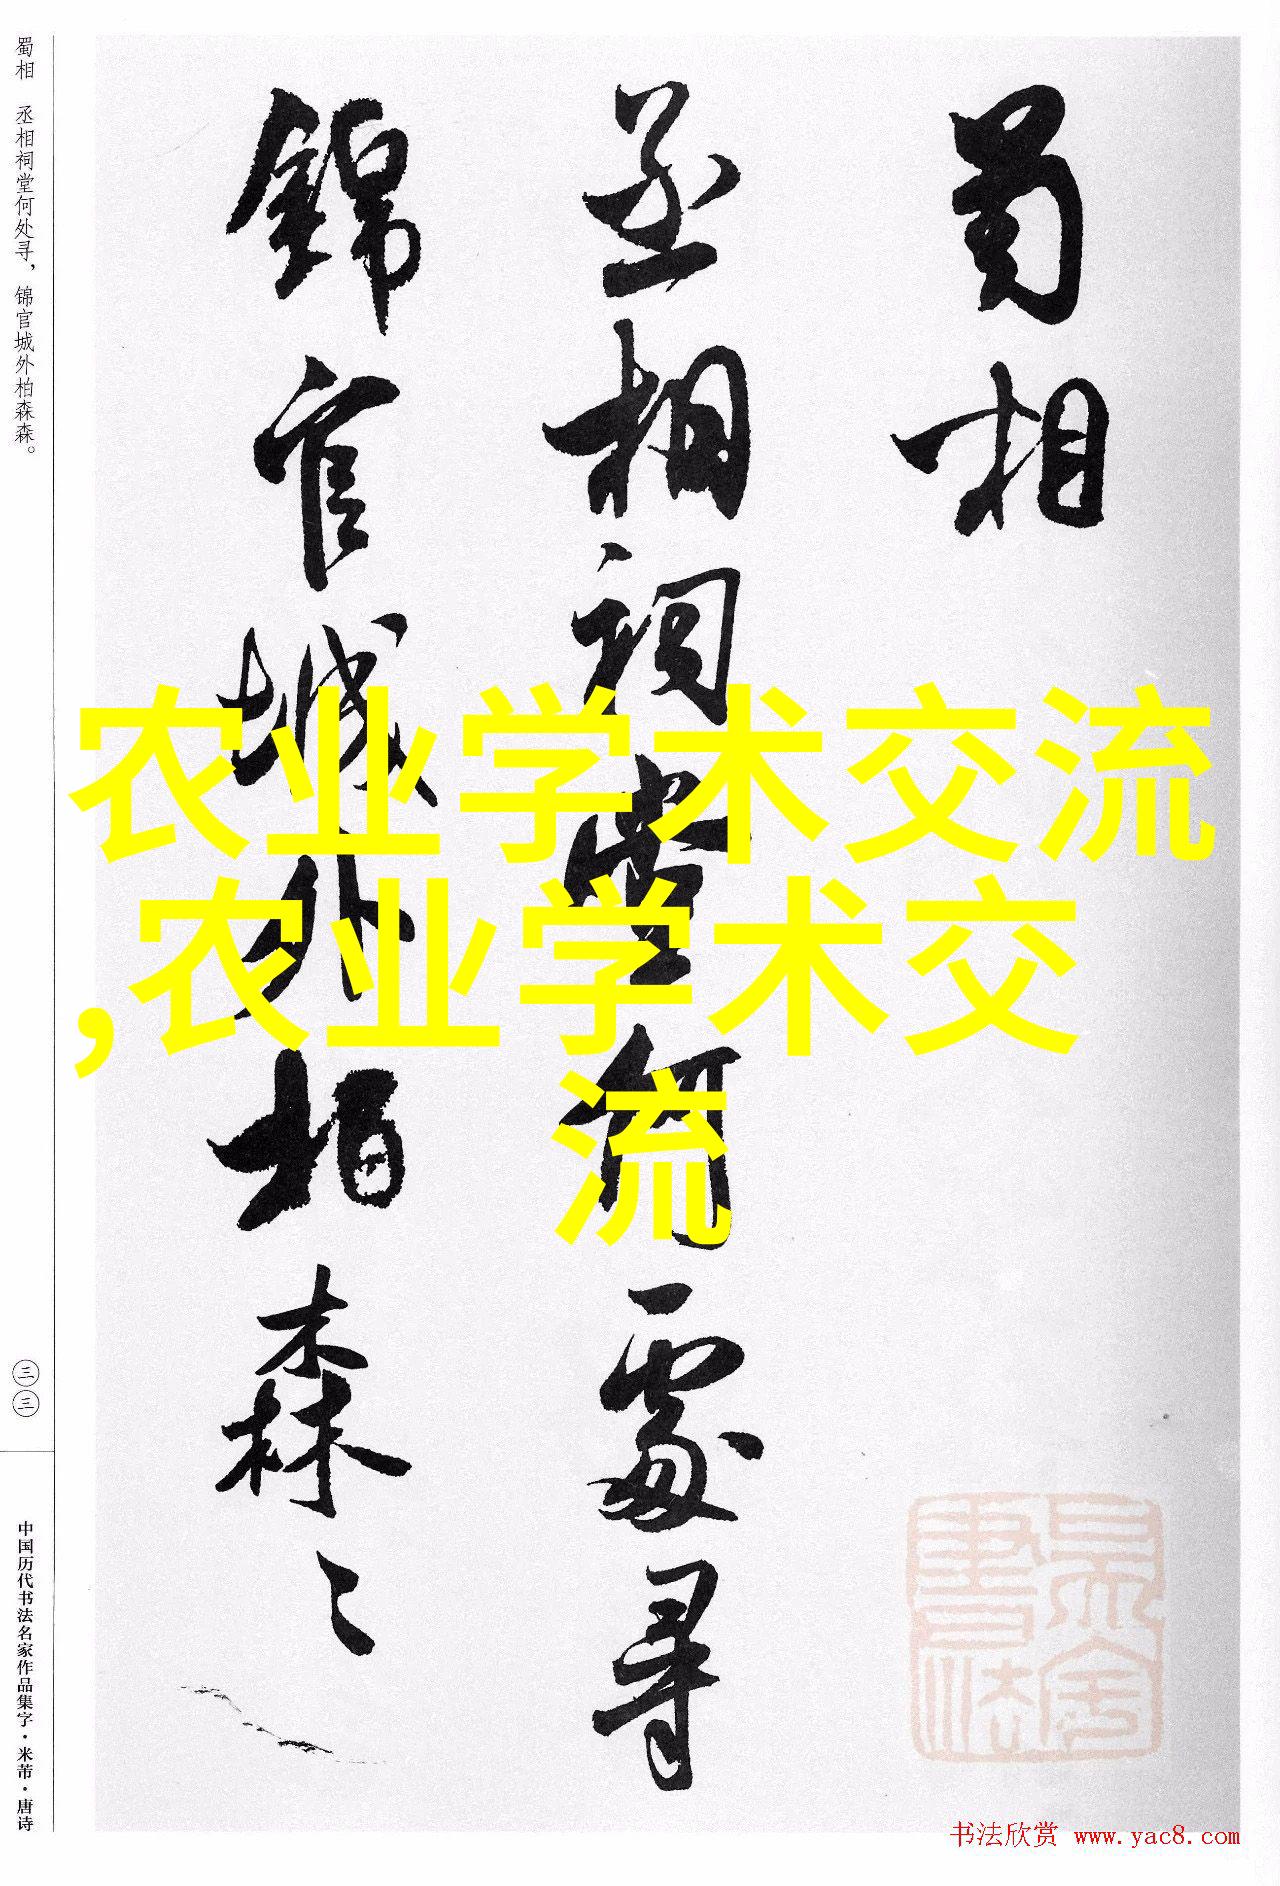 蜀相　丞相祠堂何处寻，锦官城外柏森森。
蜀相
丞相祠堂何處尋
錦官城外柏森〻
农业学术交流
,农业学术交
流
三三
中国历代书法名家作品集字·米芾·唐诗
书法欣赏 www.yac8.com